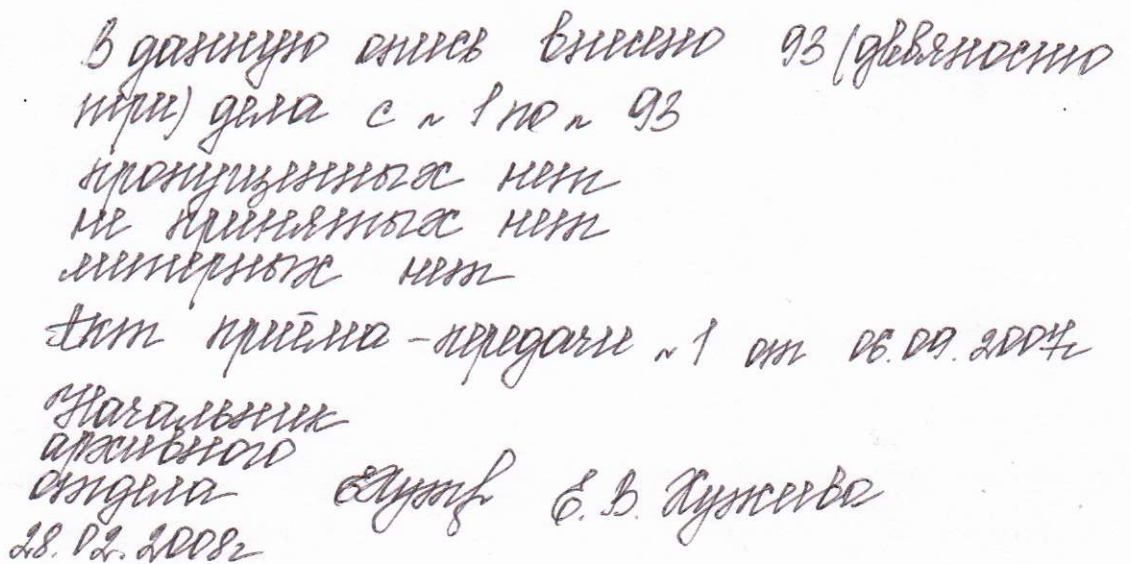 В данную опись внесено 93 (девяносто
три) дела с № 1 по № 93
пропущенных нет
не принятых нет
литерных нет
Акт приёма-передачи № 1 от 06.09.2007г
Начальник
архивного
отдела Е. В. Хужеева
28.02.2008г